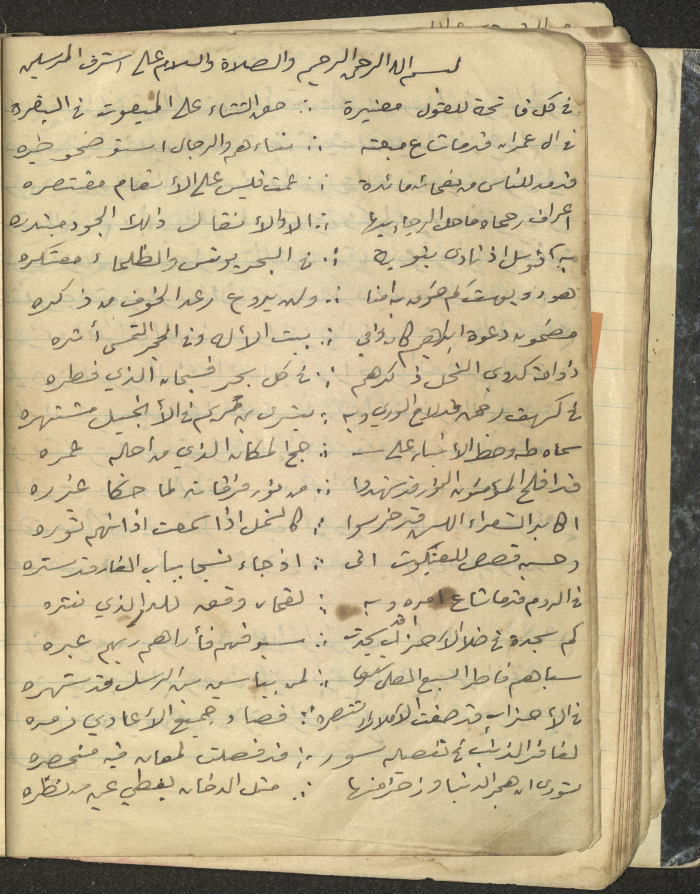 بسم الله الرحمن الرحيم والصلاة والسلام على اشرف المرسلين
في كل فاتحة للقول معتبرة ∴ حق الثناء على المبعوث في البقرة
في ال عمران قدما شاع مبعثه ∴ نساءهم والرجال استوضحو خبره
قد مد للناس من نعمائه مائدة ∴ عمت فليس على الأنعام مقتصره
اعراف رحماه ماحل الرجاء بها ∴ الا والأنفال ذلك الجود مبتدره
به توسل اذ نادى بتوبة ∴ في البحر يونس والظلماء معتكره
هود ويوسف كم خوف به امنا ∴ ولن يروع رعد الخوف من ذكره
مضمون دعوة ابراهيم كان وفي ∴ بيت الأله وفي الحجر التمس أثره
ذو امة كدوي النحل ذكرهم ∴ في كل بحر فسبحان الذي فطره
في كهف رحمن قد لاح الورى وبه ∴ بشرى بن مريم في الأنجيل مشتهره
سماه طه وحض الأنبياء على ∴ حج المكان الذي من اجله عمره
قد افلح المؤمنون النور قد شهدوا ∴ من نور فرقانه لما
اكابر الشعراء اللسن قد خرسوا ∴ كالنمل اذا سمعت اذانهم سوره
وحسبه قصص للعنكبوت اتى ∴ اذ جاء نسجا بباب الغار قد ستره
في الروم قدما شاع امره وبه ∴ لقمان وفق للدر الذي نثره
كم سجدة في طلا الأحزاب قد سجدت ∴ سيوفهم فأراهم ربهم عبره
سباهم فاطر السبع العلى ∴ لمن بياسين بين الرسل قد شهره
في الأحزاب قد صفت الأملاك تنصره ∴ فصاد جميع الأعادي زمره
لغافر الذنب في تفصيله سور ∴ قد فصلت لمعان فيه منحصره
شورى ان هجر الدنيا وزخرفها ∴ مثل الدخان يغطي عين من نظره